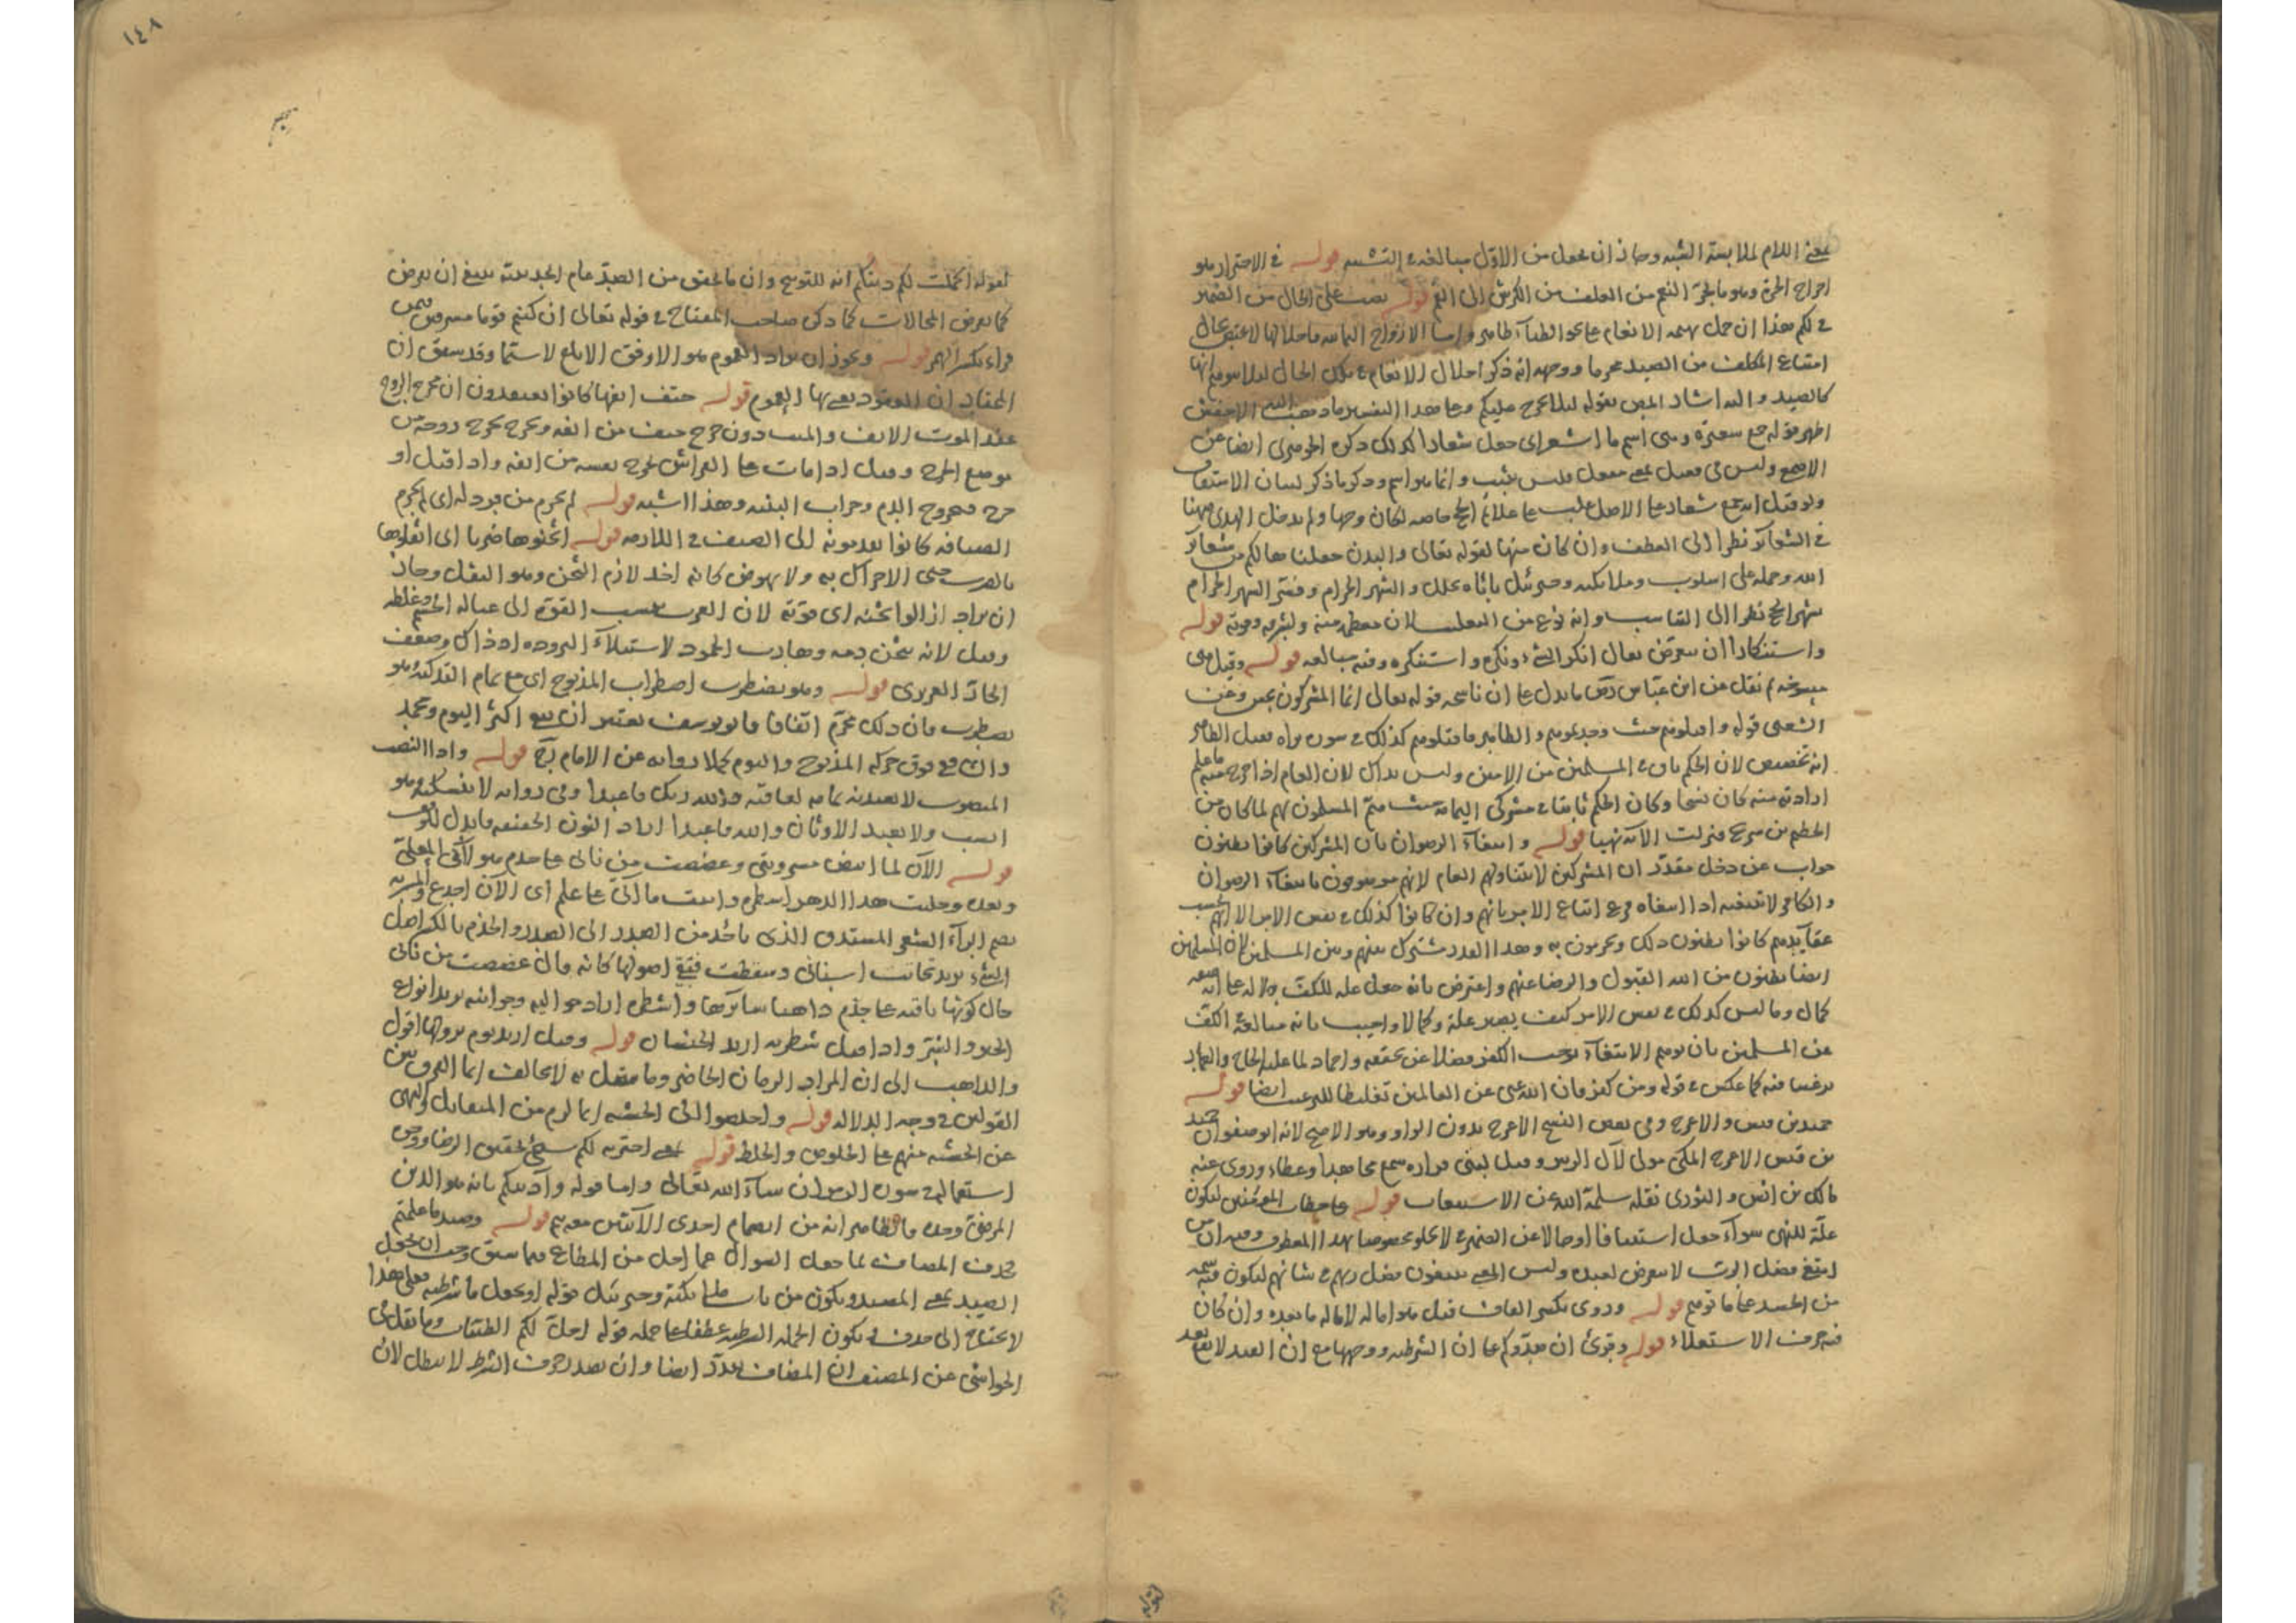 بمعنى اللام لملابسة الشبه وجاز ان يجعل من الاول مبالغة في التشبيه قوله في الاجترار هو
اخراج الجرة وهو ما يجره النعم من العلف من الكرش الى الفم قوله نصب على الحال من الضمير
في لكم هذا ان حمل بهيمة الانعام على نحو الظباء ظاهر واما الازواج الثمانية فاحلالها لا يختص بحال
امتناع المكلف من الصيد محرما ووجهه انه ذكر احلال الانعام في تلك الحال لئلا يتوهم انها
كالصيد واليه اشار المص بقوله لئلا يحرج عليكم وعلى هذا التفسير
اظهر قوله جمع شعيرة وهى اسم ما اشعر اى جعل شعارا كذلك ذكره الجوهرى ايضا عن
الاصمعى وليس هى فعيل بمعنى مفعول وليس بثبت وانما هو اسم وذكر ما ذكر لبيان الاشتقاق
ولو قيل انه جمع شعار على الاصل غلب على علائم الحج خاصة لكان وجها ولم يدخل الهدى ههنا
في الشعائر نظرا الى العطف وان كان منها لقوله تعالى والبدن جعلناها لكم من شعائر
الله وحمله على اسلوب وملائكته وجبرئيل والشهر الحرام وفسر الشهر الحرام
شهر الحج نظرا الى القاسب وانه نوع من التغليب لان معظمه منه ولشرفه وقوته قوله
واستنكارا ان يتعرض يقال انكر الشىء ونكره واستنكره وفيه مبالغة قوله وقيل هى
منسوخة ثم نقل عن ابن عباس رض ما يدل على ان ناسخه قوله تعالى انما المشركون نجس وعن
الشعبى قوله واقتلوهم حيث وجدتموهم والظاهر فاقتلوهم كذلك في سورة براءة فعيل الظاهر
انه تخصيص لان الحكم باق في المسلمين من الامين وليس بذاك لان العام اذا خرج منه ما علم
ارادته منه كان نسخا وكان الحكم ثابتا في مشركى اليمامة حيث هم المسلمون بهم لما كان من
الحطم بن سرح فنزلت الآية نهيا قوله وابتغاء الرضوان بان المشركين كانوا يظنون
جواب عن دخل مقدر ان المشركين لا يتناولهم العام لانهم موصوفون بابتغاء الرضوان
والكافر لا يتصف به اذ ابتغاه فرع اتباع الامر فانهم وان كانوا كذلك في نفس الامر الا انهم بحسب
عقائدهم كانوا يظنون ذلك ويحرمون به وهذا القدر مشترك بينهم وبين المسلمين لان المسلمين
ايضا يظنون من الله القبول والرضا عنهم واعترض بانه جعل علة للكف
كمال وما ليس كذلك في نفس الامر كيف يصير علة وكمالا واجيب بانه مبالغة الكف
عن المسلمين بان توهم الابتغاء يوجب الكف فضلا عن تحققه واحماد لما عليه الحاج والعمار
ترغيبا فيه كما عكس في قوله ومن كفر فان الله غنى عن العالمين تغليظا للترغيب ايضا قوله
حميد بن قيس والاعرج وفى بعض النسخ الاعرج بدون الواو وهو الاصح لانه ابو صفوان حميد
بن قيس الاعرج المكى مولى لآل الزبير وقيل لبنى فزارة سمع مجاهدا وعطاء وروى عنه
مالك بن انس والثورى نقله سلمه الله من الاستيعاب قوله على خطاب المؤمنين ليكون
علة للنهى سواء جعل استينافا او حالا عن الضمير في لا تحلو مخصوصا بهذا المعطوف وفيه ان من
ابتغى فضل الرب لا يتعرض لعبده وليس المعنى يبتغون فضل ربهم في شانهم ليكون فيه شمة
من الحسد على ما توهم قوله وروى بكسر الفاء قيل هو امالة لامالة ما بعده وان كان
فيه حرف الاستعلاء قوله وقرئ ان صدوكم على ان الشرطية ووجهها مع ان الصد لا يقع بعد
١٤٨
لقوله اكملت لكم دينكم انه للتوبيخ وان ما تحقق من الصد عام الحديبية ينبغى ان يفرض
كما يفرض المحالات كما ذكره صاحب المفتاح في قوله تعالى ان كنتم قوما مسرفين فيمن
قراء بكسر الهمزة قوله ويجوز ان يراد العموم هو الاوفق الابلغ لا سيما وقد سبق ان
المختار ان العقود يعنى بها العموم قوله حتف انفها كانوا يعتقدون ان مخرج الروح
عند الموت الانف والميت دون جرح حتف من انفه ويجرح يخرج روحه من
موضع الجرح وقيل اذا مات على الفراش تخرج نفسه من انفه واذا قتل او
جرح فخروج الدم وخراب البنية وهذا اشبه قوله لم يحرم من فزد له اى لم يحرم
الضيافة كانوا يقدمونه الى الضيف في اللازمه قوله اثخنوها ضربا اى اثقلوها
بالضرب حتى لا حراك به ولا نهوض كانه اخذ لازم الثخن وهو الثقل وجاز
ان يراد ازالوا ثخنه اى قوته لان العرب تنسب القوة الى عبالة الجسم وغلظه
وقيل لانه سخن دمه وهارب الجمود لاستيلاء البرودة اذ ذاك وضعف
الحار الغريزى قوله وهو يضطرب اضطراب المذبوح اى مع تمام التذكية وهو
يضطرب فان ذلك محرم اتفاقا فابو يوسف يعتبر ان يبقى اكثر اليوم ومحمد
وان فوق حركة المذبوح واليوم كملا رواية عن الامام رح قوله وذا النصب
المنصوب لا تعبدنه تمامه لعافية والله ربك فاعبدا وفى رواية لا تنسكنه وهو
انسب ولا تعبد الاوثان والله فاعبدا اراد النون الخفيفة فابدل للوقف
قوله الآن لما ابيض مسربتى وعضضت من نابى على جذم هو لآ فى المعلى
وبعده وحلبت هذا الدهر اشطره واتيت ما آتى على علم اى الآن اجدع والمسربة
بضم الراء الشعر المستدق الذى ياخذ من الصدر الى الصدر والجذم بالكسر اصل
الشىء يريد تحاتت اسنانى وسقطت فبقى اصولها كانه قال عضضت من نابى
حال كونها باقية على جذم ذاهبا سائرها واشطره اراد حواليه وجوانبه يريد انواع
الخير والشر واذا قيل شطريه اريد الخلفان قوله وقيل اريد يوم نزولها اقول
والذاهب الى ان المراد الزمان الحاضر وما يتصل به لا يخالف انما الفرق بين
القولين في وجه الدلالة قوله واخلصوا لى الخشية انما لزم من المقابل والنهى
عن الخشية منهم على الخلوص والخلط قوله يعنى اخترته لكم سيجئ تحقيق الرضا ووجه
استعماله في سورة الزمر ان شاء الله تعالى واما قوله وآذنتكم بانه هو الدين
المرضى وحده فالظاهر انه من انضمام احدى الآيتين معه ثم قوله وصيد ما علمتم
بحذف المضاف لما جعل السؤال عما احل من المطاعم فيما سبق وجب ان يجعل
الصيد بمعنى المصيد ويكون من باب ملائكته وجبرئيل قوله او يجعل ما شرطية فعلى هذا
لا يحتاج الى حذف ويكون الجملة الشرطية عطفا على جملة قوله احل لكم الطيبات وما نقل فى
الحواشى عن المصنف ان المضاف مقدر ايضا وان بعد حرف الشرط لا يبطل لان